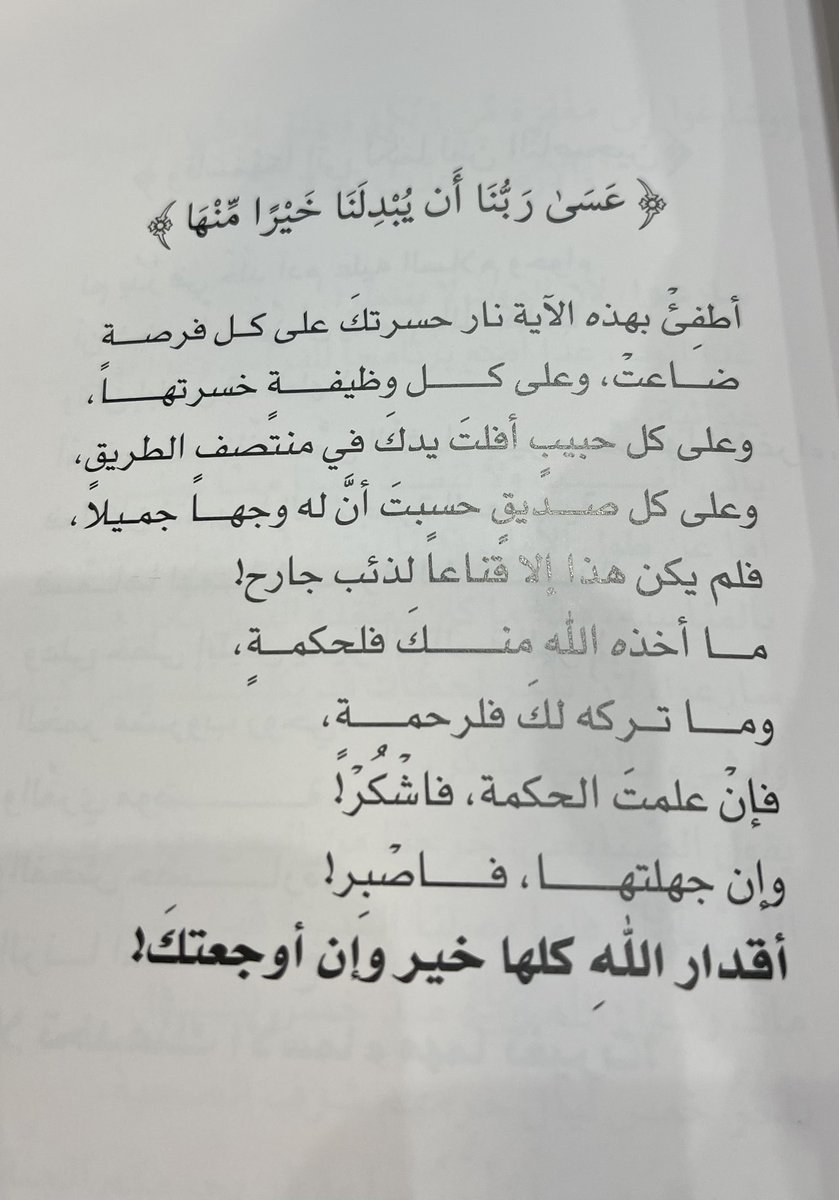 ﴿ عَسَىٰ رَبُّنَا أَن يُبْدِلَنَا خَيْرًا مِّنْهَا ﴾
أطفِئْ بهذه الآية نار حسرتكَ على كل فرصة
ضاعتْ، وعلى كل وظيفةٍ خسرتها،
وعلى كل حبيبٍ أفلتَ يدكَ في منتصف الطريق،
وعلى كل صديقٍ حسبتَ أنَّ له وجهاً جميلاً،
فلم يكن هذا إلا قناعاً لذئب جارح!
ما أخذه الله منكَ فلحكمةٍ،
وما تركه لكَ فلرحمة،
فإنْ علمتَ الحكمة، فاشْكُرْ!
وإن جهلتها، فاصْبِر!
أقدار اللهِ كلها خير وإن أوجعتكَ!